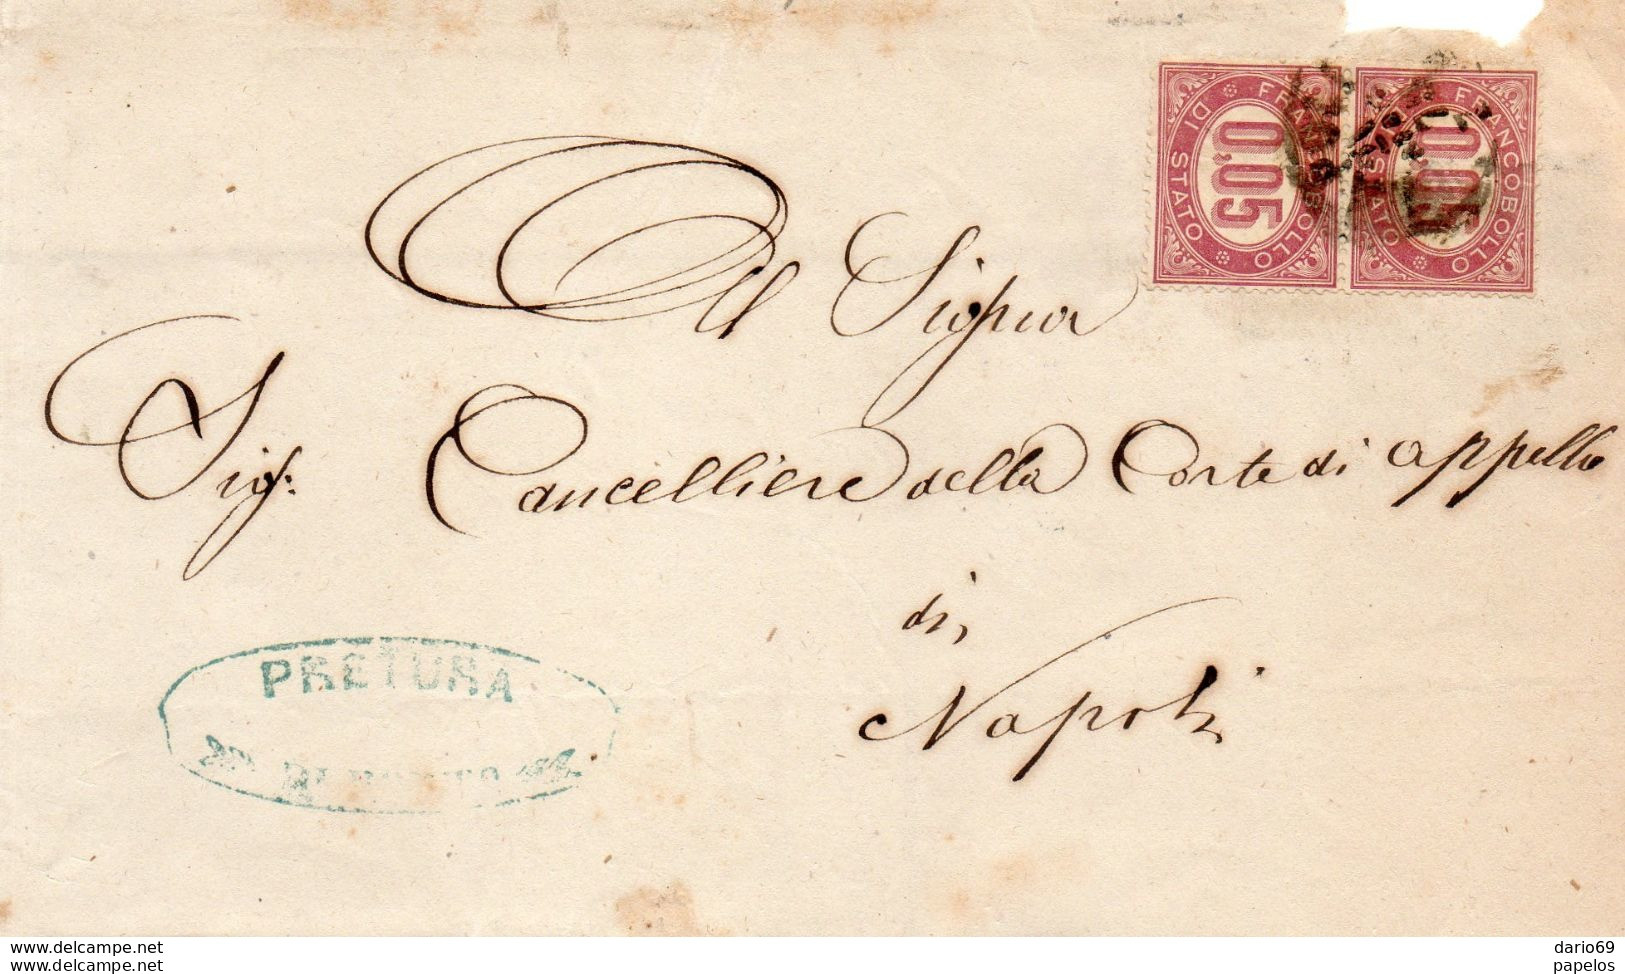 FRANCOBOLLO DI STATO
0,05
FRANCOBOLLO DI STATO
0,05
All Signor
Sig: Cancelliere della Corte di appello
di
Napoli
PRETURA
DI
www.delcampe.net
www.delcampe.net
dario69
papelos